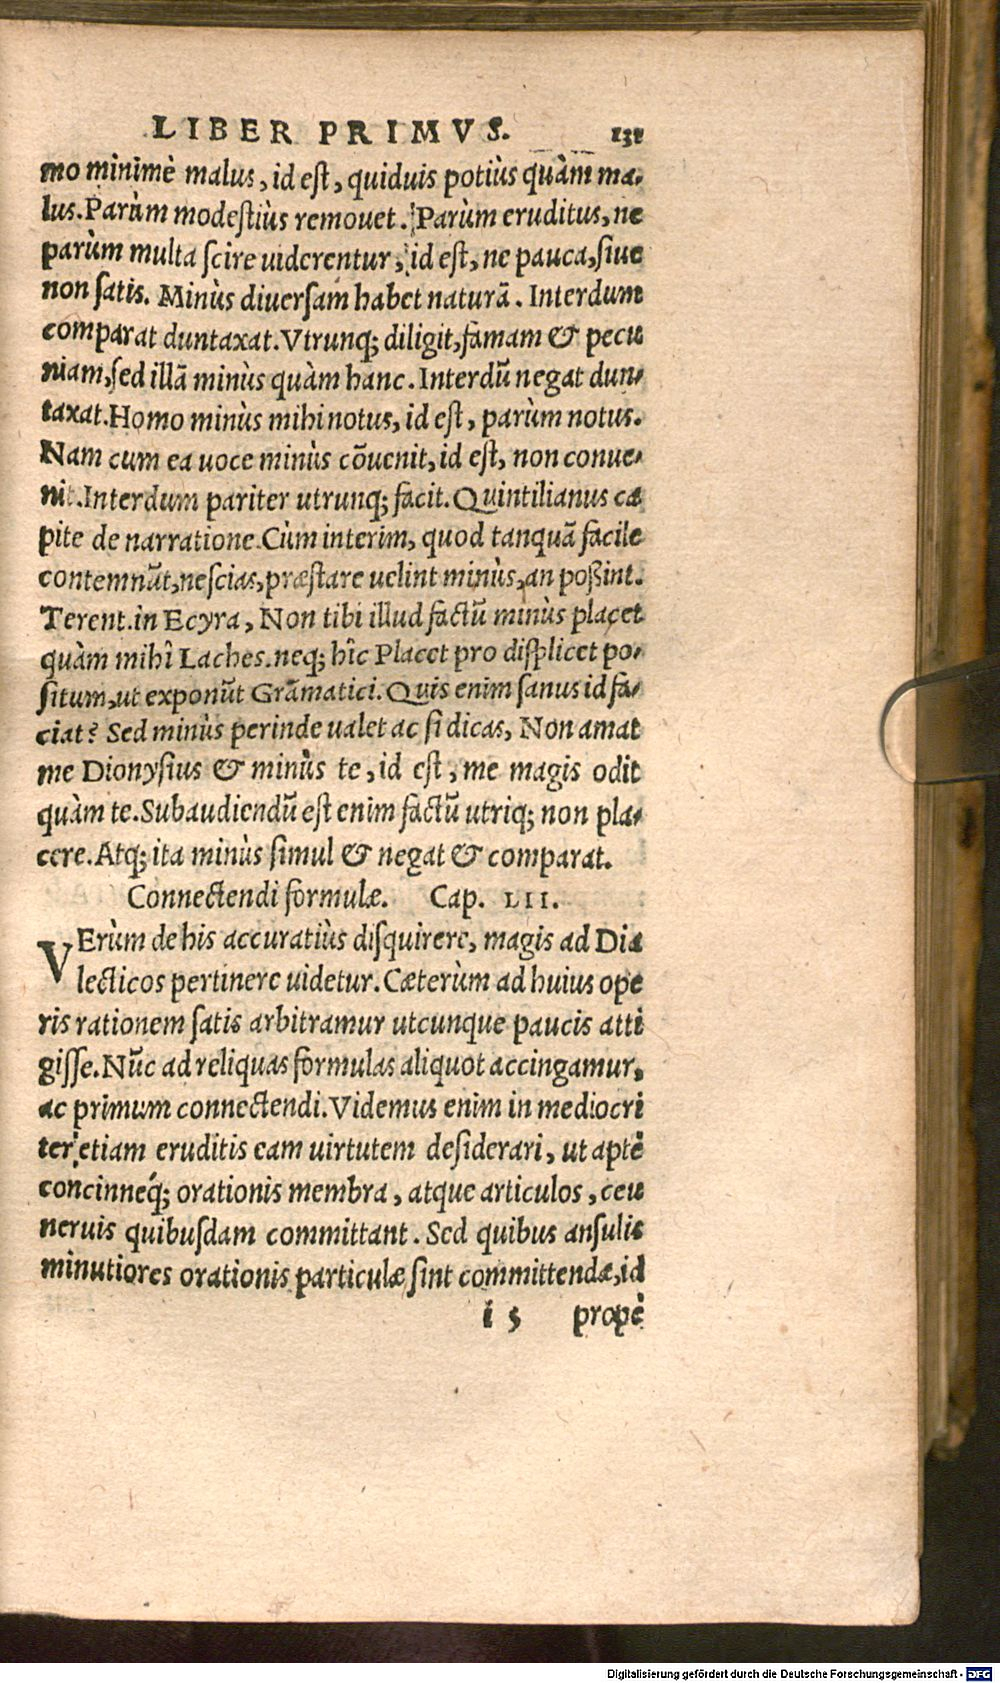 LIBER PRIMVS. 131
mo minimè malus, id est, quiduis potiùs quàm ma-
lus. Parùm modestiùs remouet. Parùm eruditus, ne
parùm multa scire uiderentur, id est, ne pauca, siue
non satis. Minùs diuersam habet naturã. Interdum
comparat duntaxat. Vtrunq; diligit, famam & pecu
niam, sed illã minùs quàm hanc. Interdũ negat dun-
taxat. Homo minùs mihi notus, id est, parùm notus.
Nam cum ea uoce minùs cõuenit, id est, non conue-
nit. Interdum pariter utrunq; facit. Quintilianus ca
pite de narratione. Cùm interim, quod tanquã facile
contemnũt, nescias, præstare uelint minùs, an poßint.
Terent. in Ecyra, Non tibi illud factũ minùs placet
quàm mihi Laches. neq; hîc Placet pro displicet po-
situm, ut exponũt Grãmatici. Quis enim sanus id fa-
ciat? Sed minùs perinde ualet ac si dicas, Non amat
me Dionysius & minùs te, id est, me magis odit
quàm te. Subaudiendũ est enim factũ utriq; non pla-
cere. Atq; ita minùs simul & negat & comparat.
Connectendi formulæ. Cap. LII.
VErùm de his accuratiùs disquirere, magis ad Dia
lecticos pertinere uidetur. Cæterùm ad huius ope
ris rationem satis arbitramur utcunque paucis atti
gisse. Nũc ad reliquas formulas aliquot accingamur,
ac primum connectendi. Videmus enim in mediocri
ter etiam eruditis eam uirtutem desiderari, ut aptè
concinneq́; orationis membra, atque articulos, ceu
neruis quibusdam committant. Sed quibus ansulis
minutiores orationis particulæ sint committendæ, id
i 5 propè
Digitalisierung gefördert durch die Deutsche Forschungsgemeinschaft - DFG